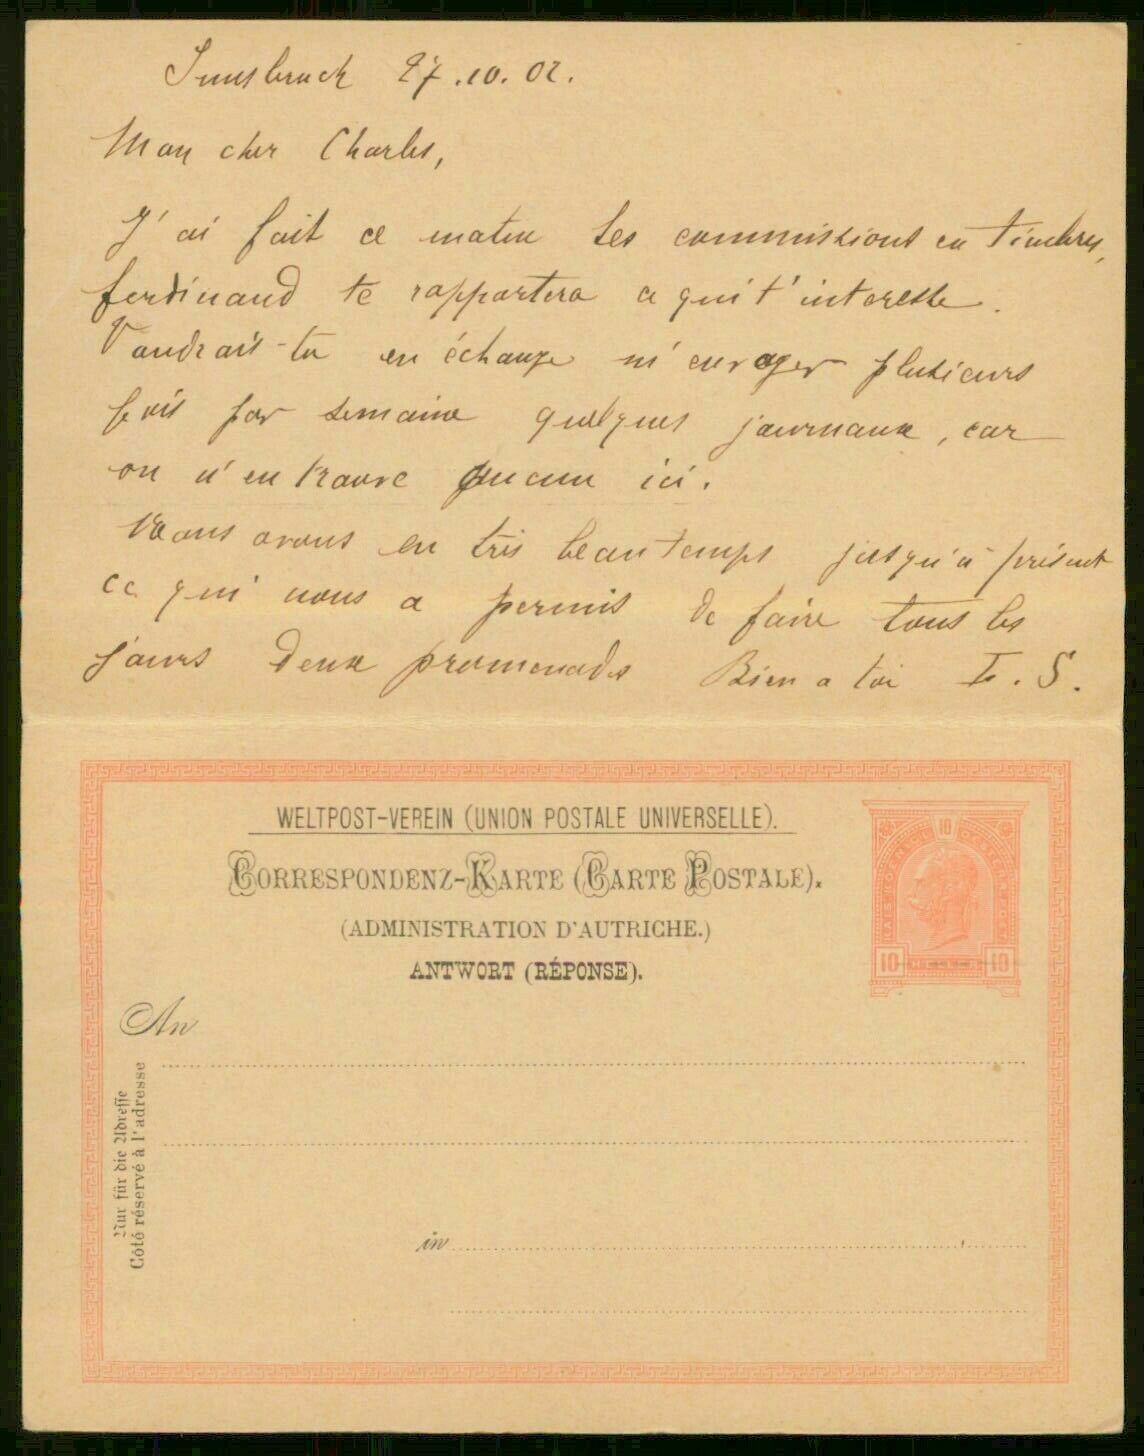 Innsbruck 27.10.02.
Mon cher Charles,
J'ai fait ce matin tes commissions en timbres,
ferdinand te rapportera ce qui t'interesse.
Voudrais-tu en échange m'envoyer plusieurs
fois par semaine quelques journaux, car
on n'en trouve aucun ici.
Nous avons eu très beau temps jusqu'à présent
ce qui nous a permis de faire tous les
jours deux promenades Bien a toi L. S.
WELTPOST-VEREIN (UNION POSTALE UNIVERSELLE).
CORRESPONDENZ-KARTE (CARTE POSTALE).
(ADMINISTRATION D'AUTRICHE.)
ANTWORT (RÉPONSE).
10
KAIS. KOENIGL. OESTERR. POST
10 HELLER 10
An
Nur für die Adresse
Côté réservé à l'adresse
in